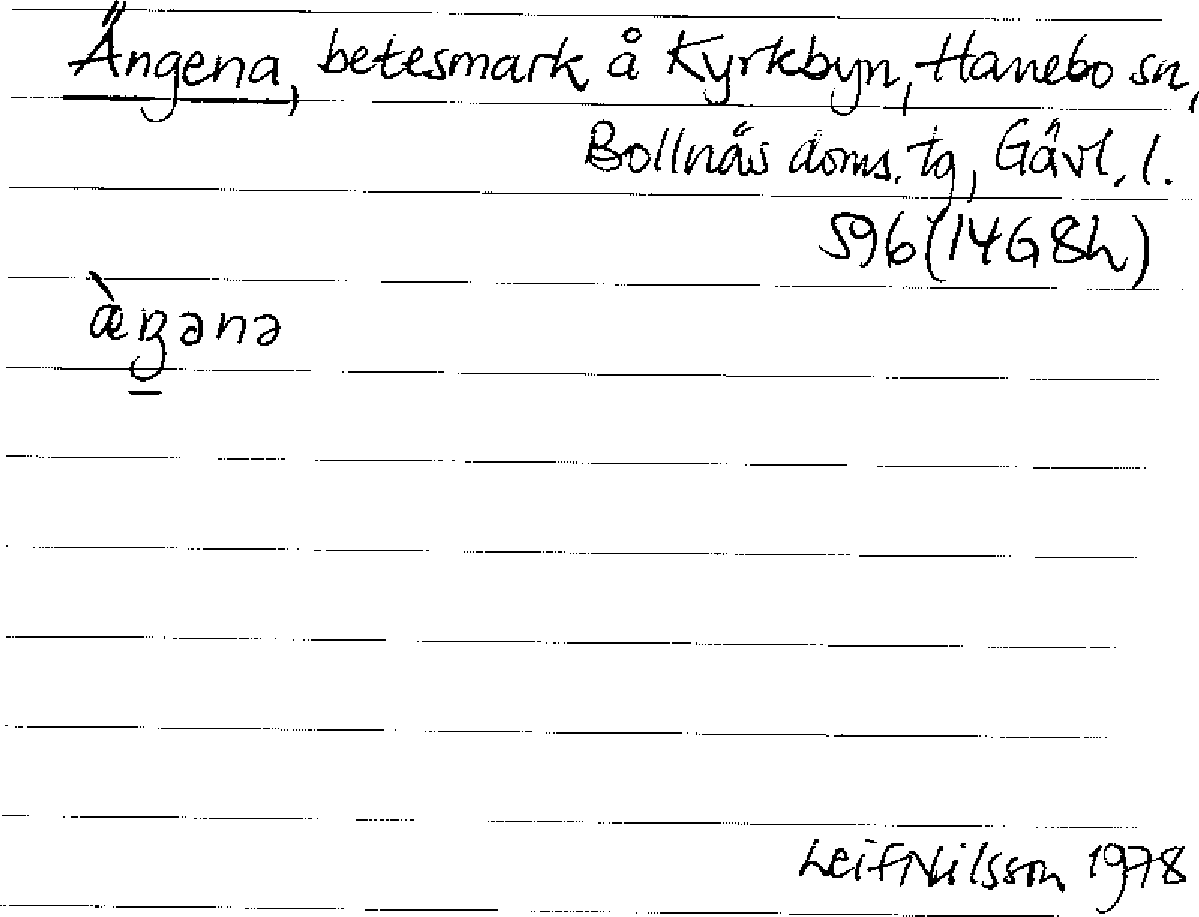 Ängena, betesmark å Kyrkbyn, Hanebo sn,
Bollnäs doms. tg, Gävl. l.
S96 (14G8h)
æ̀ŋənə
Leif Nilsson 1978